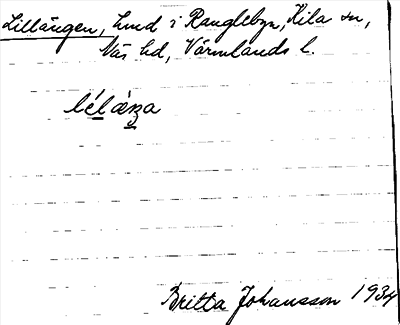 Lillängen, Lund i Ranglebyn, Kila sn,
Näs hd, Värmlands l.
lélæŋa
Britta Johansson 1934